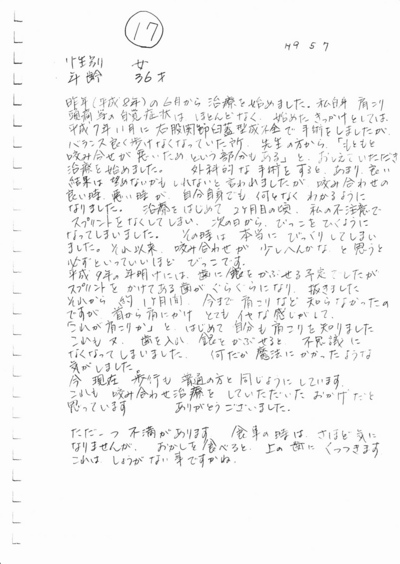 17
H9 5 7
性別 女
年齢 36才
昨年(平成8年)の6月から治療を始めました。私自身 肩こり
頭痛等の自覚症状は ほとんどなく、始めたきっかけとしては、
平成7年11月に右股関節臼蓋形成不全で手術をしましたが、
バランス良く歩けなくなっていた所、先生の方から、「もともと
咬み合せが悪いためという部分もある」と、おしえていただき
治療を始めました。 外科的な手術をすると、あまり、良い
結果は望めないかもしれないと言われましたが、咬み合わせの
良い時、悪い時が、自分自身でも何となく わかるように
なりました。 治療をはじめて 2ヶ月目の頃、私の不注意で
スプリントをなくしてしまい、次の日から、びっこをひくように
なってしまいました。 その時は、本当に びっくりしてしまい
ました。それ以来、咬み合わせが 少しへんかな、と思うと
必ずといっていいほど びっこです。
平成9年の年明けには、歯に銀をかぶせる予定でしたが
スプリントを かけてある歯がぐらぐらになり、抜きました
それから 約1ケ月間、今まで肩こりなど知らなかったの
ですが、首から肩にかけ とてもイヤな感じがして、
「これが肩こりか」と、はじめて自分も肩こりを知りました
これも又、歯を入れ、銀をかぶせると 不思議に
なくなってしまいました。 何だか魔法にかかったような
気がしました。
今現在 歩行も 普通の方と同じようにしています。
これも咬み合わせ治療を していただいた おかげだと
思っています ありがとうございました。
ただ一つ不満があります。 食事の時は、さほど気に
なりませんが、 おかしを食べると、上の歯に くっつきます
これは しょうがない事ですかね。